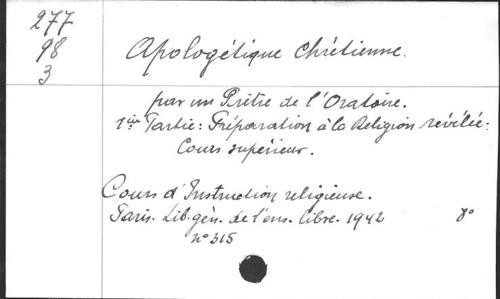 277
98
3
Apologétique Chrétienne.
par un Prêtre de l'Oratoire.
1ère Partie: Préparation à la Religion révélée.
Cours supérieur.
Cours d'Instruction religieuse.
Paris. Lib. gén. de l'ens. libre. 1942 8°
n° 315